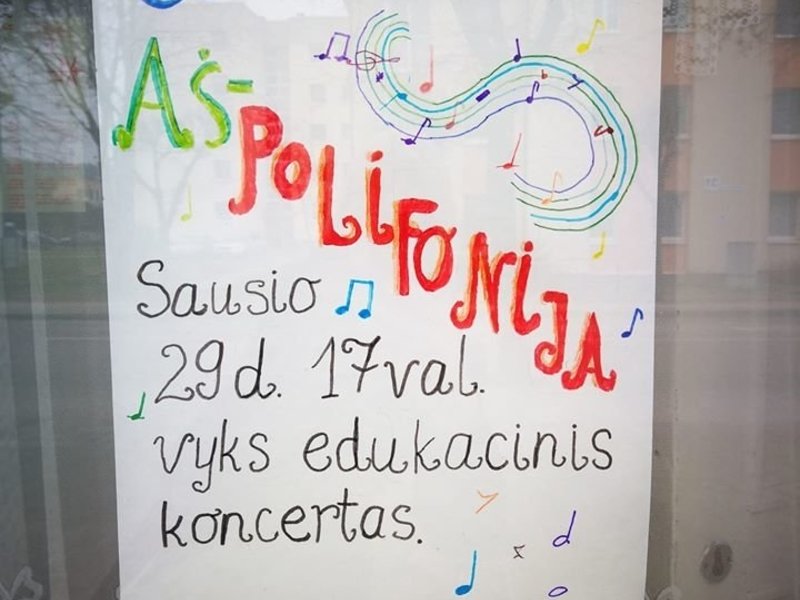 Aš-
POLIFONIJA
Sausio
29 d. 17 val.
vyks edukacinis
koncertas.